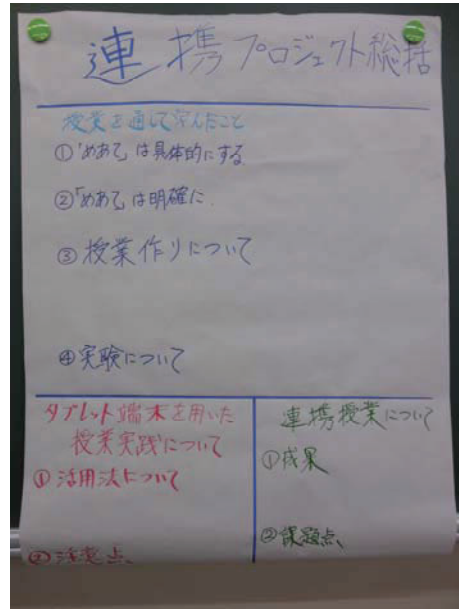 連携プロジェクト総括
授業を通して学んだこと
①「めあて」は具体的にする
②「めあて」は明確に.
③授業作りについて
④実験について
タブレット端末を用いた
授業実践について
①活用法について
②注意点、
連携授業について
①成果
②課題点、